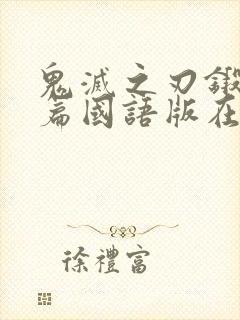 鬼滅之刃鍛
篇國語版在
徐禮富